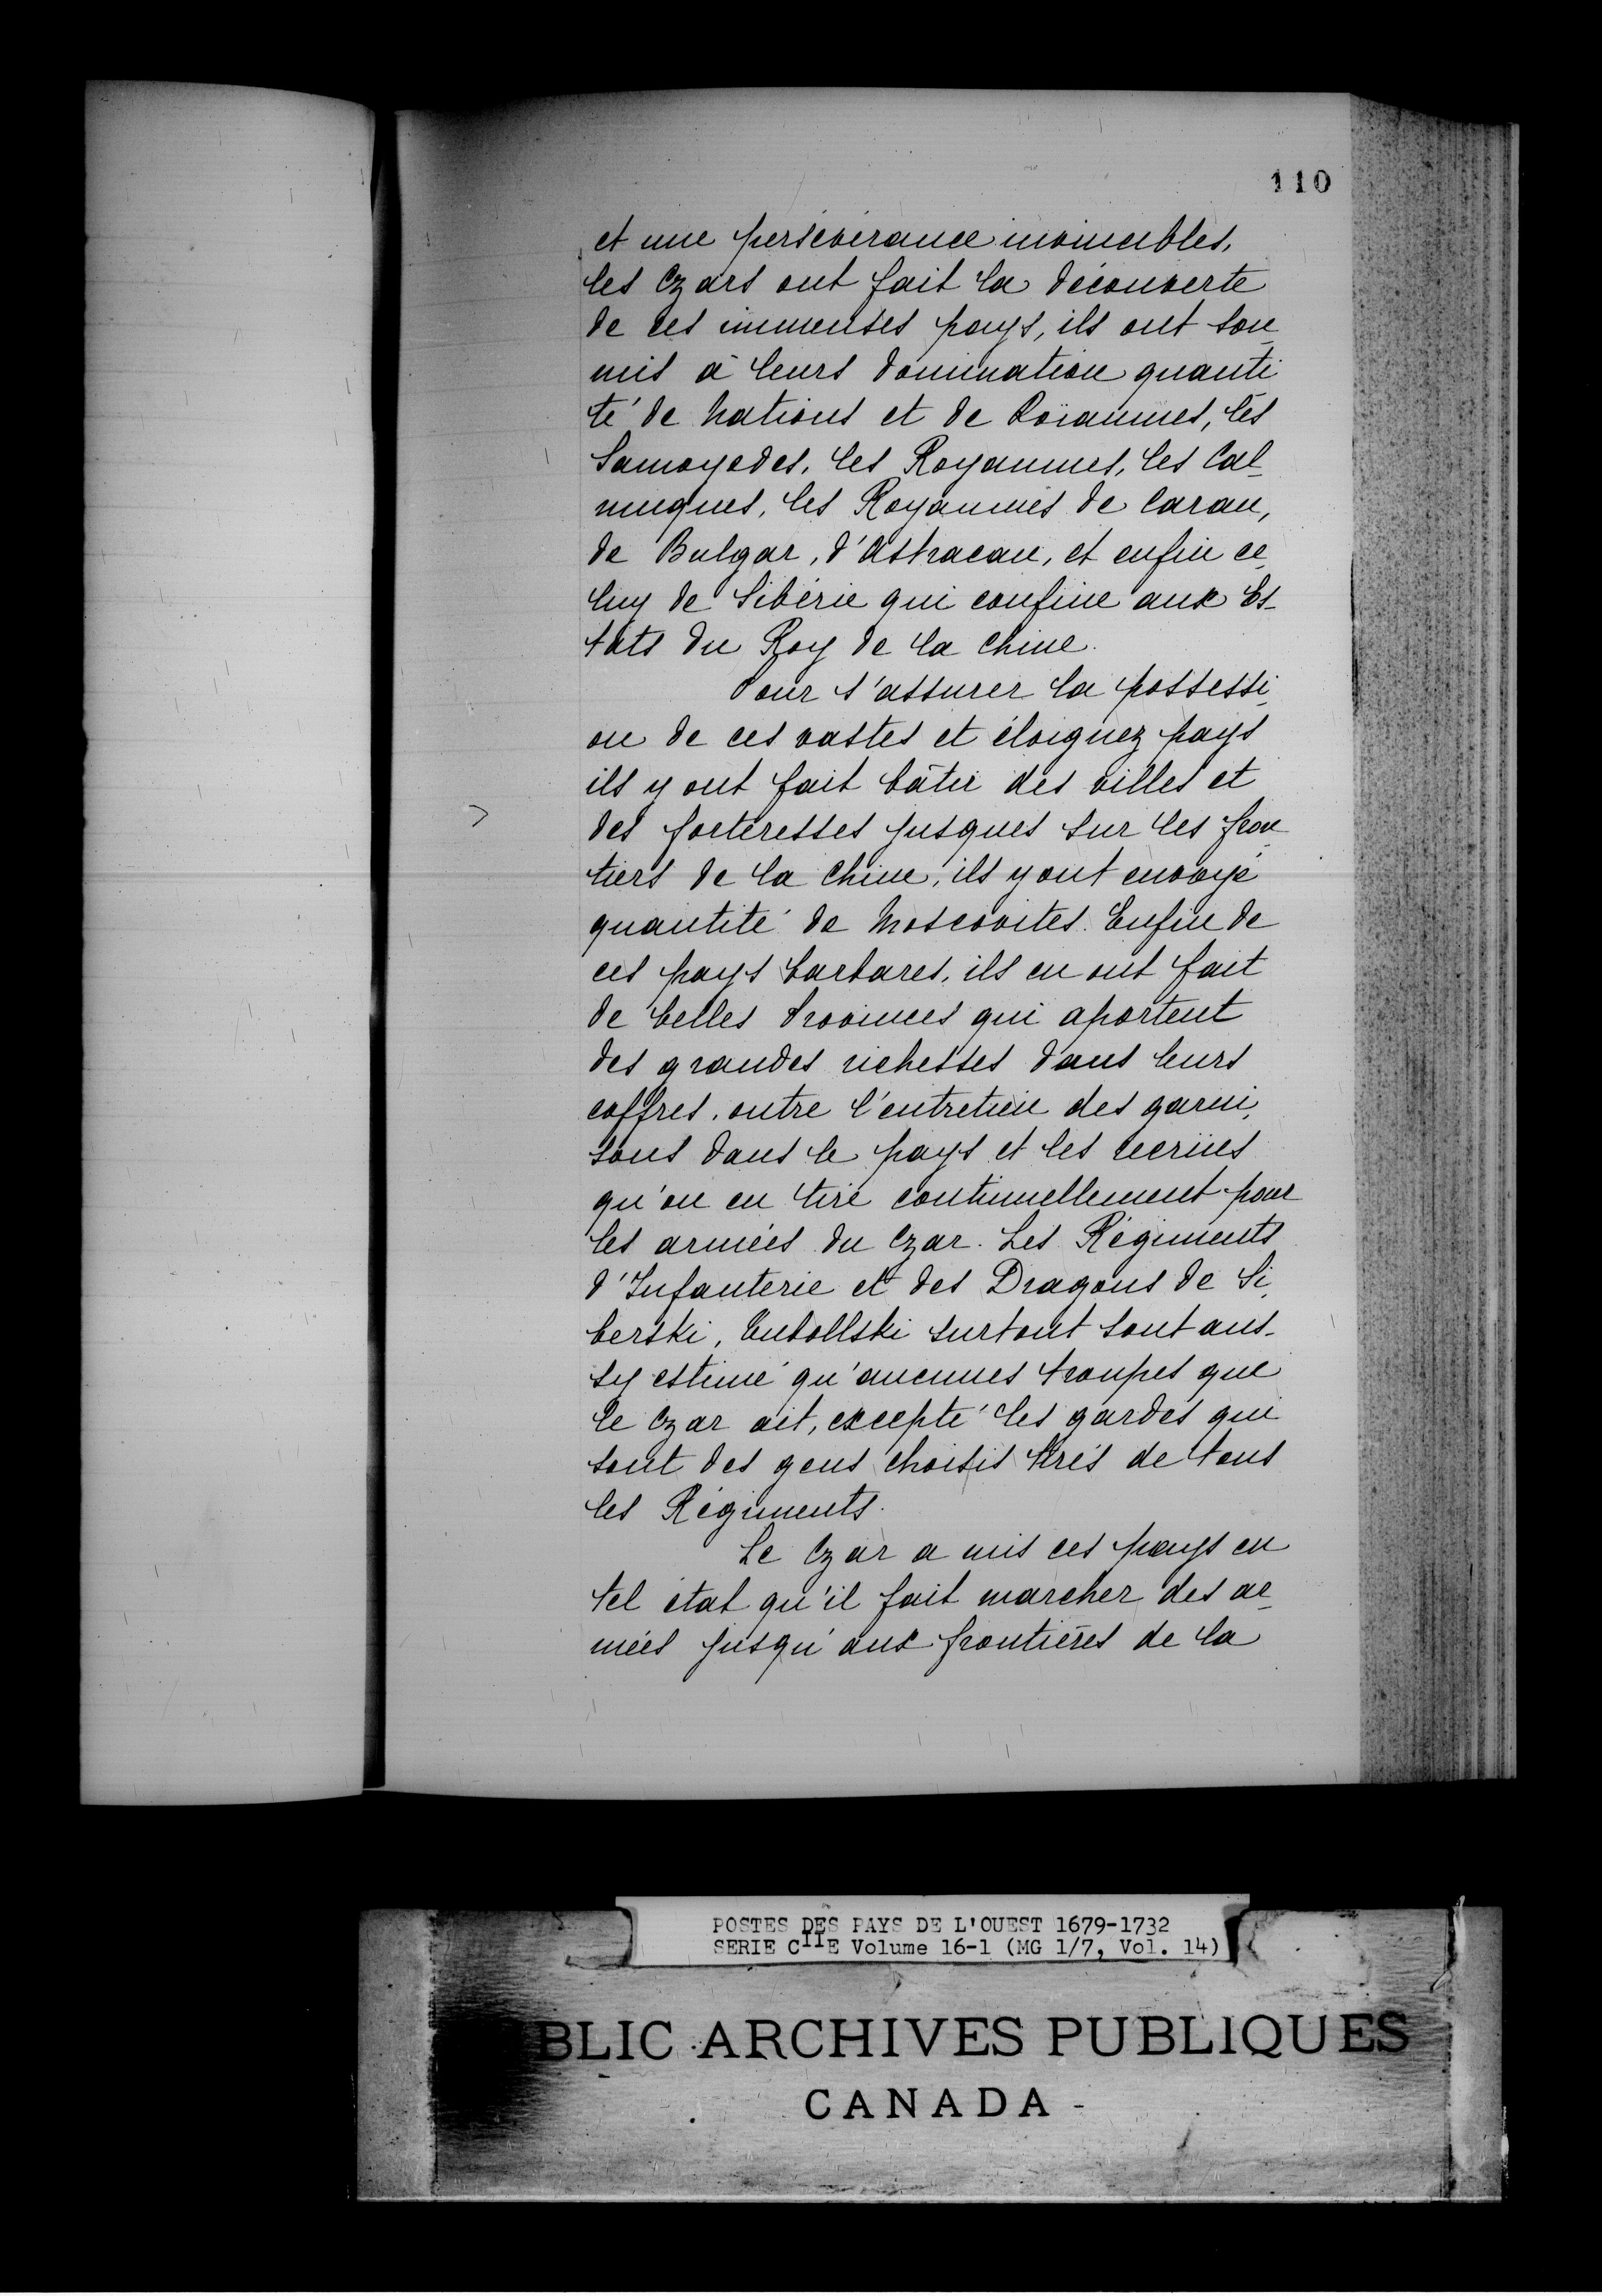 110
et une persévérance invincibles,
les Czars ont fait la découverte
de ces immenses pays, ils ont sou_
mis à leurs domination quanti
té de Nations et de Roïaumes, les
Samoyedes, les Royaumes, les Cal_
muques, les Royaumes de Caran,
de Bulgar, d'Astracan, et enfin ce_
luy de Sibérie qui confine aux Es_
tats du Roy de la Chine.
Pour s'assurer la possessi_
on de ces vastes et éloignez pays
ils y ont fait bâtir des villes et
des forteresses jusques sur les fron_
tiers de la Chine, ils y ont envoyé
quantité de Moscovites. Enfin de
ces pays barbares, ils en ont fait
de belles Provinces qui aportent
des grandes richesses dans leurs
coffres, outre l'entretien des garni_
sons dans le pays et les recrües
qu'on en tire continuellement pour
les armées du Czar. Les Régiments
d'Infanterie et des Dragons de Si_
berski, surtout sont aus_
sy estimé qu'aucunes troupes que
le Czar ait, excepté les gardes qui
sont des gens choisis tirés de tous
les Régiments.
Le Czar a mis ces pays en
tel état qu'il fait marcher des ar_
mées jusqu'aux frontières de la
POSTES DES PAYS DE L'OUEST 1679-1732
SERIE CIIE Volume 16-1 (MG 1/7, Vol. 14)
BLIC ARCHIVES PUBLIQUES
CANADA -